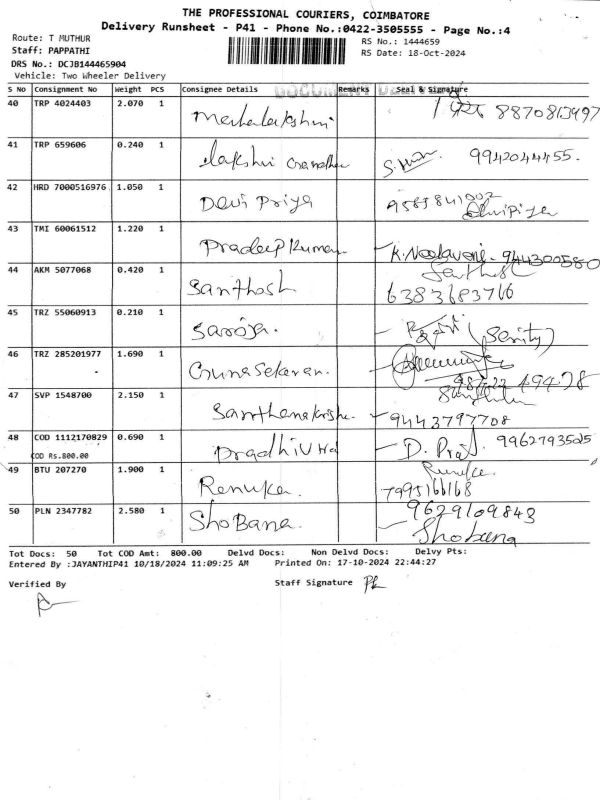 THE PROFESSIONAL COURIERS, COIMBATORE
Delivery Runsheet - P41 - Phone No.:0422-3505555 - Page No.:4
Route: T MUTHUR
RS No.: 1444659
Staff: PAPPATHI
RS Date: 18-Oct-2024
DRS No.: DCJB144465904
Vehicle: Two Wheeler Delivery
S No Consignment No Weight PCS Consignee Details Remarks Seal & Signature
40 TRP 4024403 2.070 1 8870813997
41 TRP 659606 0.240 1 Lakshmi 9942044455.
42 HRD 7000516976 1.050 1 Devi Priya
43 TMI 60061512 1.220 1 Pradeep Kumar 944300580
44 AKM 5077068 0.420 1 Santhosh 6383683766
45 TRZ 55060913 0.210 1 Saroja. (Serity)
46 TRZ 285201977 1.690 1 Gunasekaran.
47 SVP 1548700 2.150 1 9443797708
48 COD 1112170829 0.690 1 D. 9962793525
COD Rs.800.00
49 BTU 207270 1.900 1 Renuka. Renuka. 7995166168
50 PLN 2347782 2.580 1 ShoBana. 9629109843
Shobana
Tot Docs: 50 Tot COD Amt: 800.00 Delvd Docs: Non Delvd Docs: Delvy Pts:
Entered By :JAYANTHIP41 10/18/2024 11:09:25 AM Printed On: 17-10-2024 22:44:27
Verified By
Staff Signature